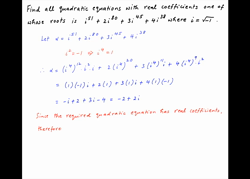 Find all quadratic equations with real coefficients one of
whose roots is i⁵¹ + 2i⁸⁰ + 3i⁴⁵ + 4i³⁸ where i = √-1.
Let α = i⁵¹ + 2i⁸⁰ + 3i⁴⁵ + 4i³⁸
i² = -1 ⇒ i⁴ = 1
∴ α = (i⁴)¹² i² i + 2(i⁴)²⁰ + 3(i⁴)¹¹ i + 4(i⁴)⁹ i²
= (1)(-1)i + 2(1) + 3(1)i + 4(1)(-1)
= -i + 2 + 3i - 4 = -2 + 2i
Since the required quadratic equation has real coefficients,
therefore